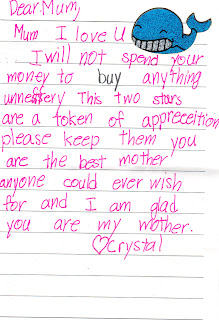 Dear Mum,
Mum I love U
I will not spend your
money to buy anything
unneffery This two stars
are a token of appreceition
please keep them you
are the best mother
anyone could ever wish
for and I am glad
you are my mother.
♡Crystal